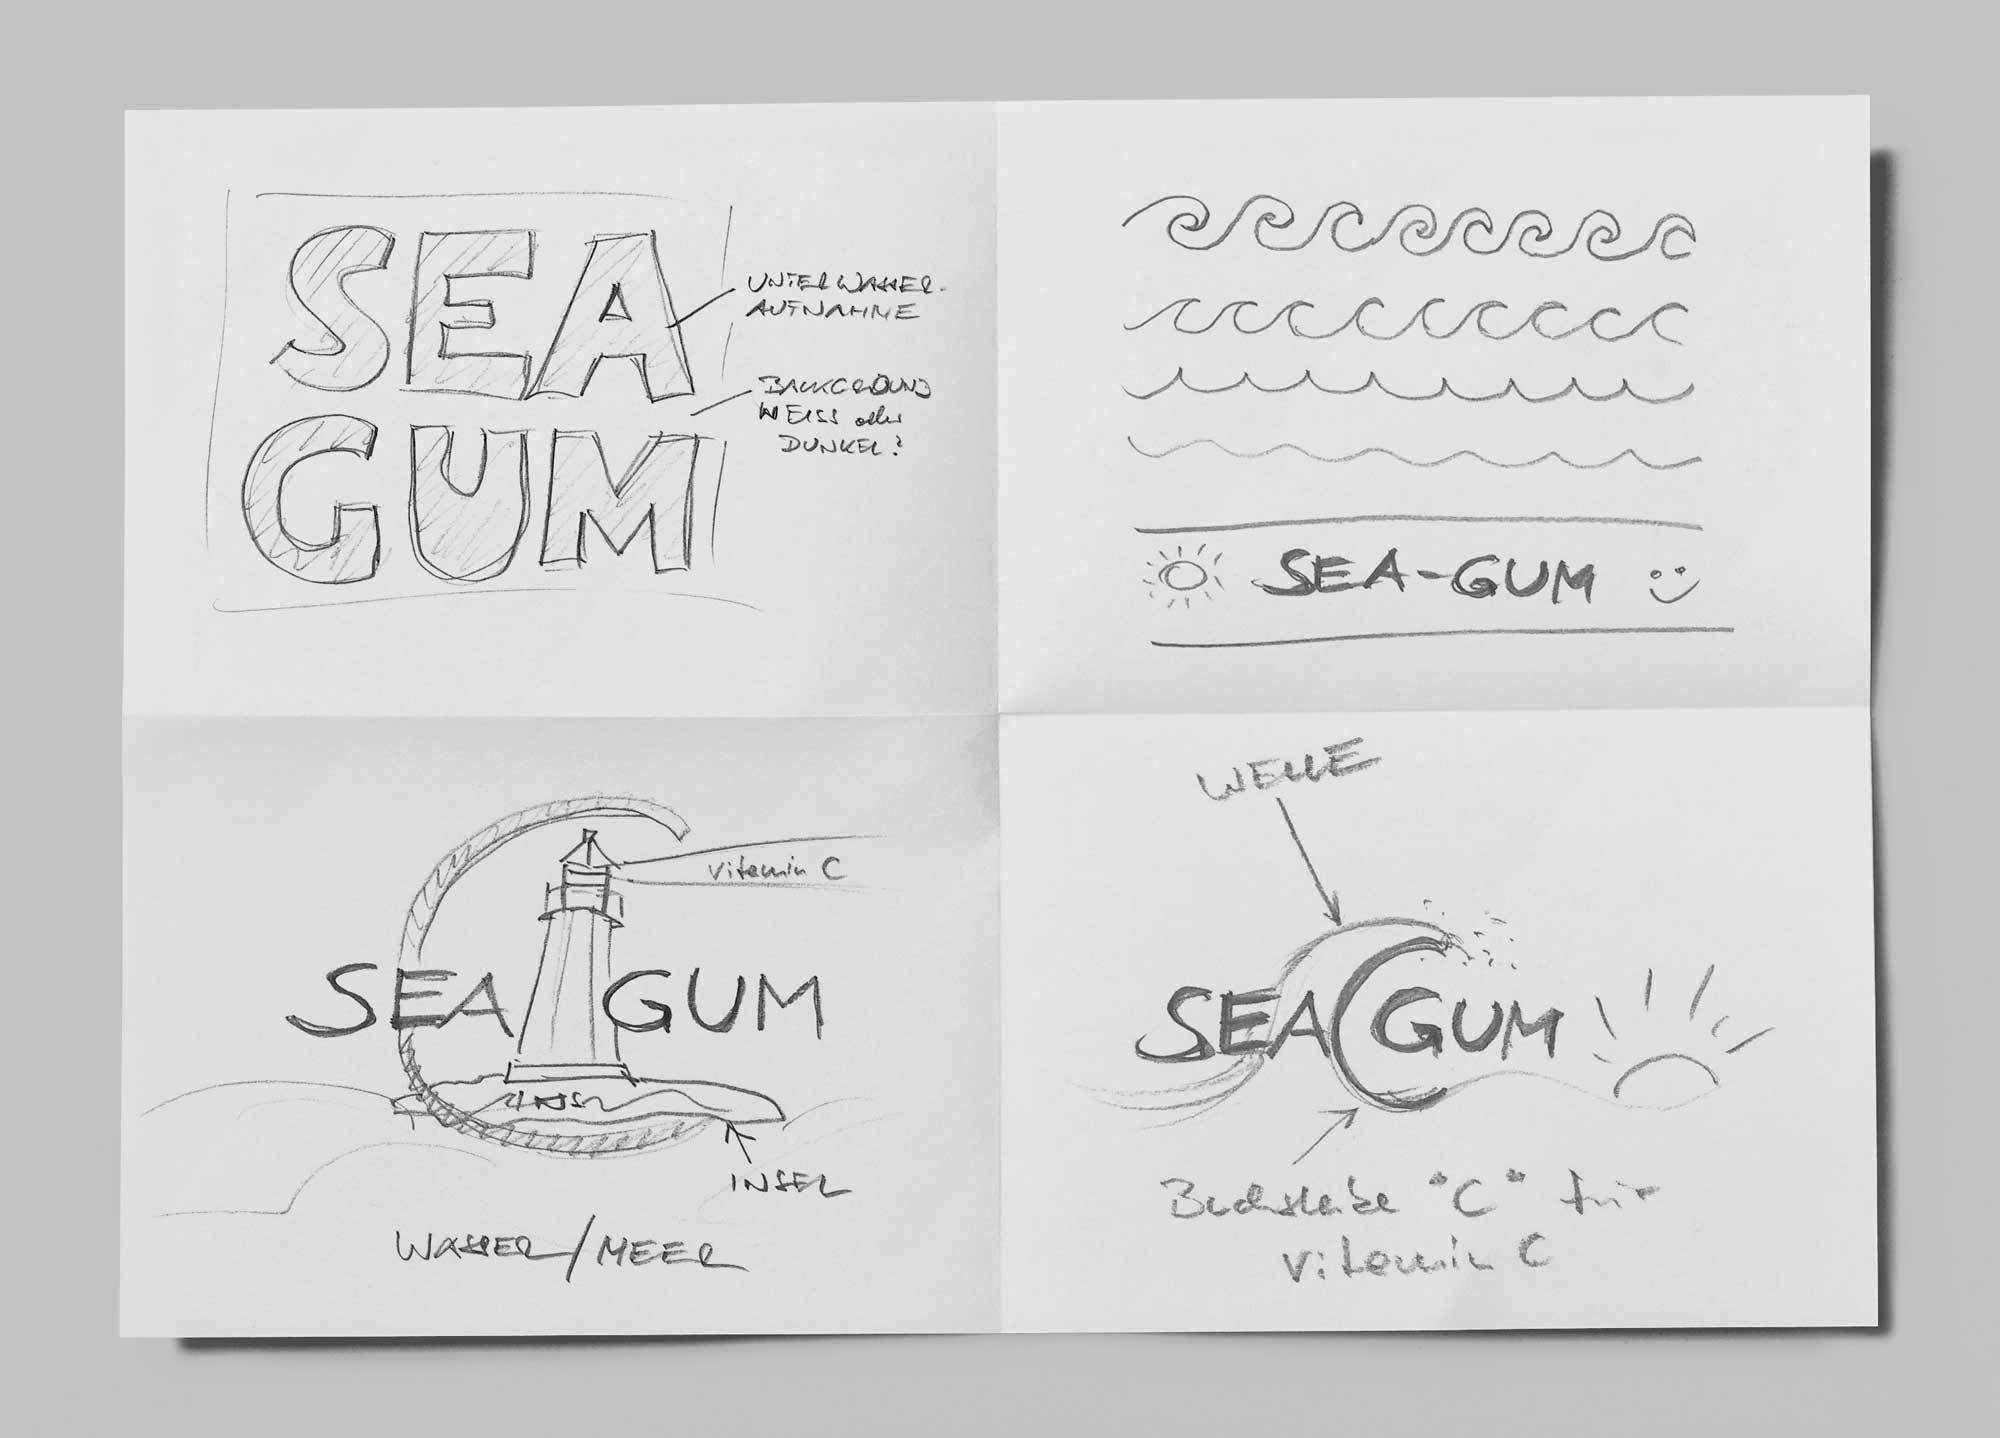 SEA
GUM
UNTERWASSER-
AUFNAHME
BACKGROUND
WEISS oder
DUNKEL?
SEA-GUM
vitamin C
SEA GUM
INSEL
INSEL
WASSER/MEER
WELLE
SEA C GUM
Buchstabe "C" für
vitamin C